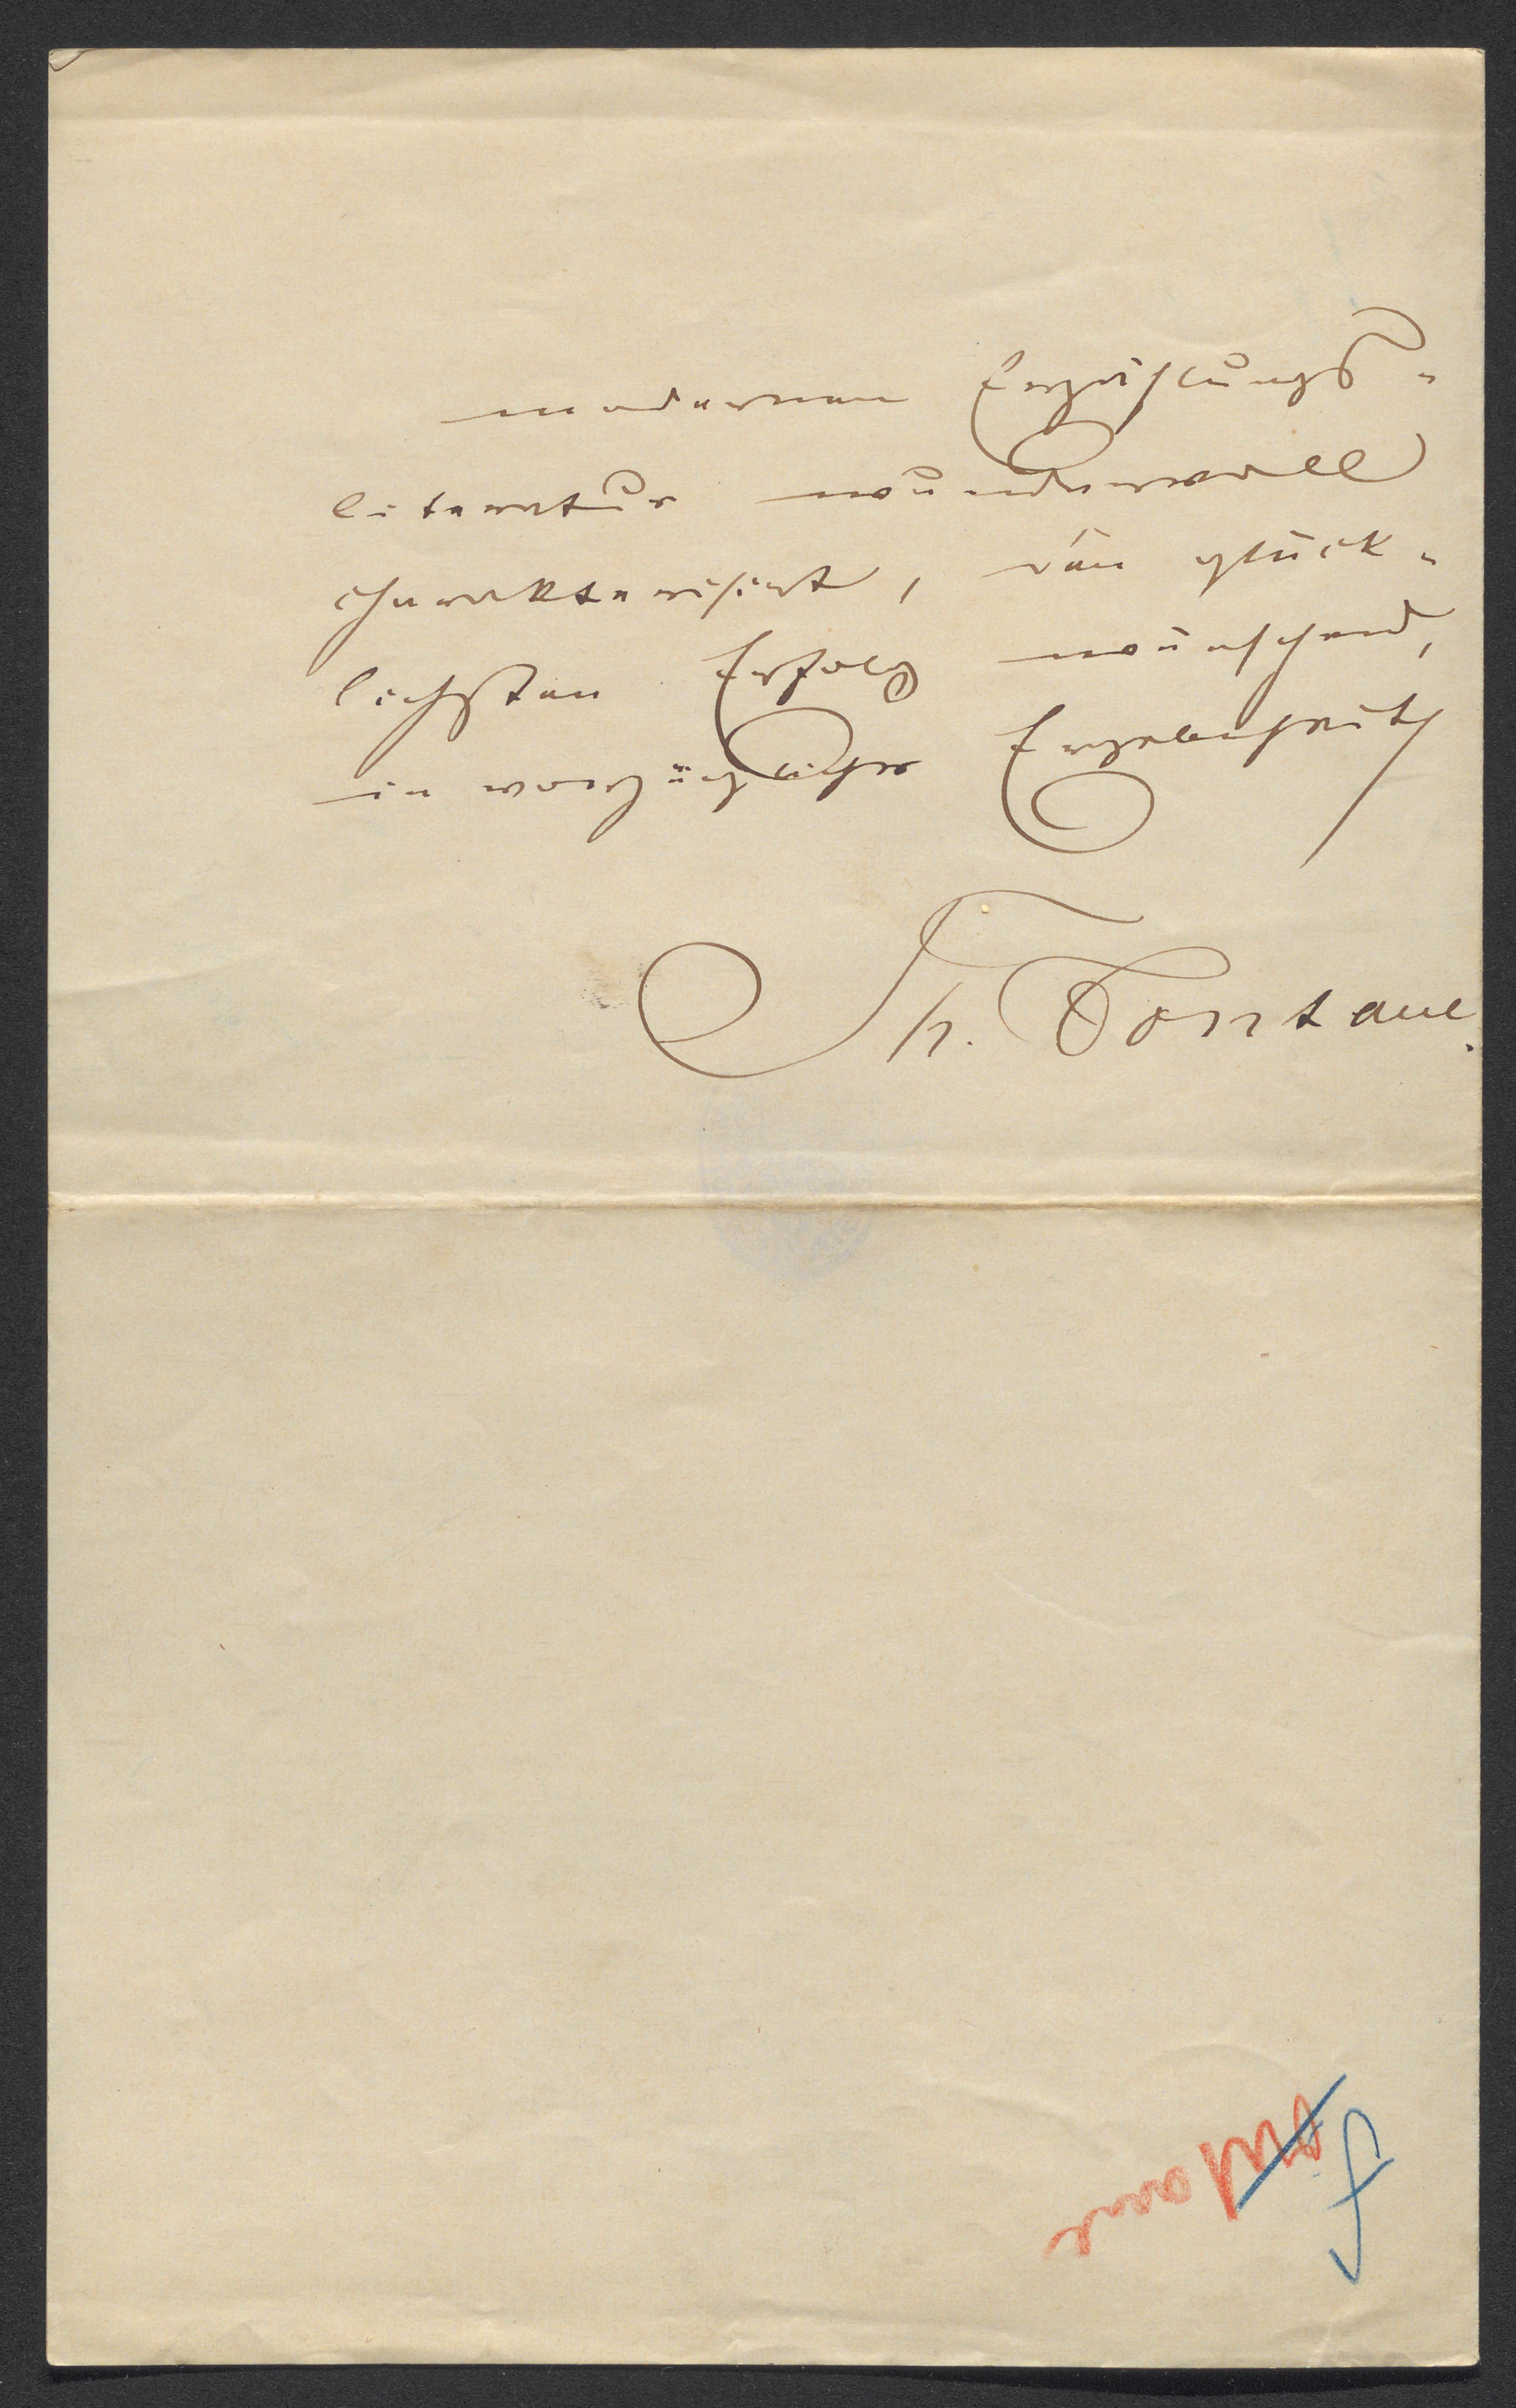 modernen Erzählungs-
literatur wundervoll
charakterisirt, den glück-
lichsten Erfolg wünschend,
in vorzüglicher Ergebenheit
Th. Fontane.